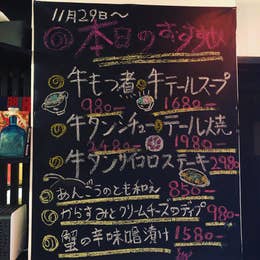 11月29日〜
◎本日のおすすめ
◎牛もつ煮◎牛テールスープ
980- 1680-
◎牛タンシチュー◎テール焼
2480- 1980-
◎牛タンサイコロステーキ 2980-
◎あんこうのとも和え 850-
◎からすみとクリームチーズのディプ 980-
◎蟹の辛味噌漬け 1580-